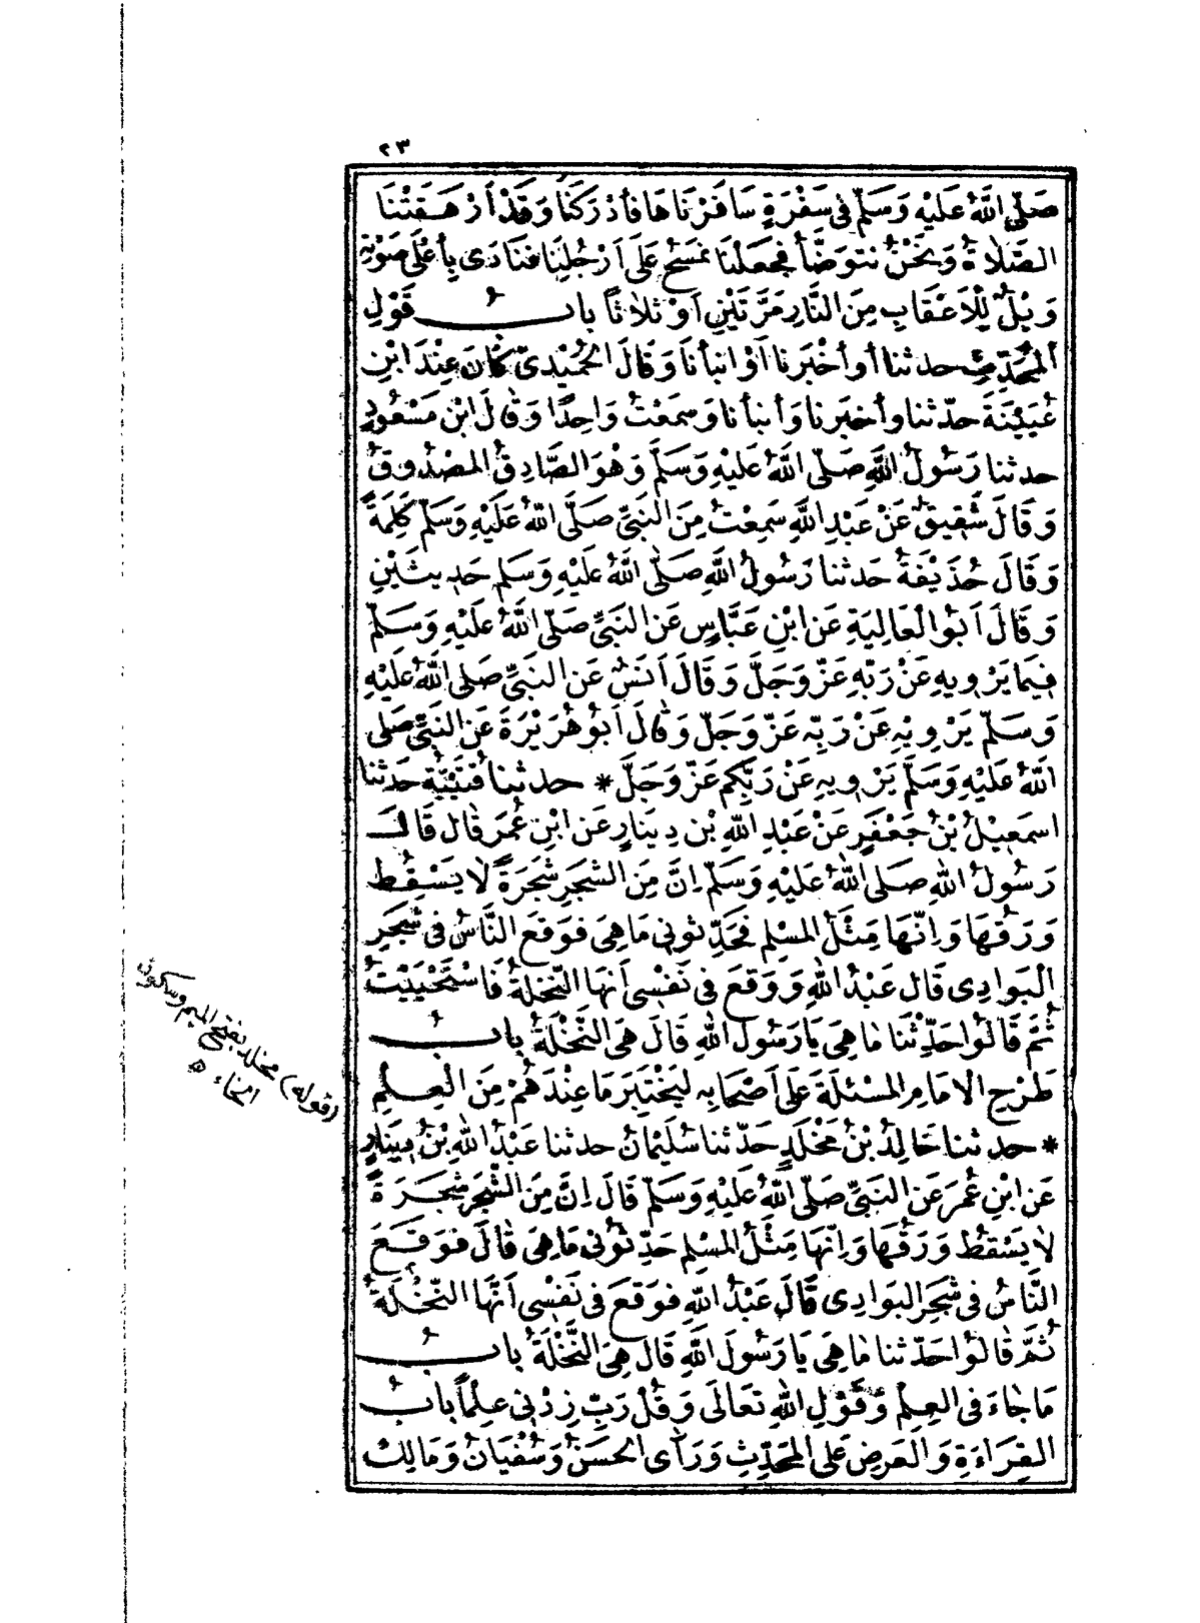 ٢٣
صَلَّى اللَّهُ عَلَيْهِ وَسَلَّمَ فِي سَفْرَةٍ سَافَرْنَاهَا فَأَدْرَكَنَا وَقَدْ أَرْهَقَتْنَا
الصَّلَاةُ وَنَحْنُ نَتَوَضَّأُ فَجَعَلْنَا نَمْسَحُ عَلَى أَرْجُلِنَا فَنَادَى بِأَعْلَى صَوْتِهِ
وَيْلٌ لِلْأَعْقَابِ مِنَ النَّارِ مَرَّتَيْنِ أَوْ ثَلَاثًا بَابُ قَوْلِ
الْمُحَدِّثِ حدثنا أو أَخْبَرنا أَوْ انبأنَا وَقَالَ الْحُمَيْدِيّ كَانَ عِنْدَ ابْنِ
عُيَيْنَةَ حدّثنا وأخبَرنا وَأنبأنا وَسَمِعْتُ وَاحِدًا وَقَالَ ابْن مَسْعُودٍ
حدثنا رَسُولُ اللَّهِ صَلَّى اللَّهُ عَلَيْهِ وَسَلَّمَ وَهْوَ الصَّادِقُ المَصْدُوقُ
وَقَالَ شَقِيقٌ عَنْ عَبْدِ اللَّهِ سَمِعْتُ مِنَ النَّبِيِّ صَلَّى اللَّهُ عَلَيْهِ وَسَلَّمَ كَلِمَةً
وَقَالَ حُذَيْفَةُ حَدثنا رَسُولُ اللَّهِ صَلَّى اللَّهُ عَلَيْهِ وَسَلم حَدِيثَيْنِ
وَقَالَ أَبُو الْعَالِيَةِ عَنِ ابْنِ عَبَّاسٍ عَنِ النَّبِيِّ صَلَّى اللَّهُ عَلَيْهِ وَسَلَّمَ
فِيمَا يَرْوِيهِ عَنْ رَبِّهِ عَزَّ وَجَلَّ وَقَالَ أَنَسٌ عَنِ النَّبِيِّ صَلَّى اللَّهُ عَلَيْهِ
وَسَلَّمَ يَرْوِيهِ عَنْ رَبِّهِ عَزَّ وَجَلَّ وَقَالَ أَبُو هُرَيْرَةَ عَنِ النَّبِيِّ صَلى
اللَّهُ عَلَيْهِ وَسَلَّمَ يَرْوِيهِ عَنْ رَبِّكُم عَزَّ وَجَلَّ * حدثنا قُتَيْبَةُ حَدثنا
اسمعِيلُ بْنُ جَعْفَرٍ عَنْ عَبْدِ اللَّهِ بْنِ دِينَارٍ عَنِ ابْنِ عُمَرَ قَالَ قَالَ
رَسُولُ اللهِ صَلى اللهُ عَلَيْهِ وَسَلَّمَ إِنَّ مِنَ الشَّجَرِ شَجَرَةً لَا يَسْقُطُ
وَرَقُهَا وَإِنَّهَا مَثَلُ المُسْلِمِ فَحَدِّثُونِي مَا هِيَ فَوَقَعَ النَّاسُ فِي شَجَرِ
الْبَوَادِي قَالَ عَبْدُ اللهِ وَوَقَعَ فِي نَفْسِي أَنَّهَا النَّخْلَةُ فَاسْتَحْيَيْتُ
ثُمَّ قَالُوا حَدِّثْنَا مَا هِيَ يَا رَسُولَ اللهِ قَالَ هِيَ النَّخْلَةُ بَابُ
طَرْحِ الْإِمَامِ الْمَسْئَلَةَ عَلَى أَصْحَابِهِ لِيَخْتَبِرَ مَا عِنْدَهُمْ مِنَ الْعِلْمِ
* حدثنا خَالِدُ بْنُ مَخْلَدٍ حَدّثنا سُلَيْمَانُ حدثنا عَبْدُ اللهِ بْنُ دِينَارٍ
عَنِ ابْنِ عُمَرَ عَنِ النَّبِيِّ صَلَّى اللَّهُ عَلَيْهِ وَسَلَّمَ قَالَ إِنَّ مِنَ الشَّجَرِ شَجَرَةً
لَا يَسْقُطُ وَرَقُهَا وَإِنَّهَا مَثَلُ المُسْلِمِ حَدِّثُونِي مَا هِيَ قَالَ فَوَقَعَ
النَّاسُ فِي شَجَرِ البَوَادِي قَالَ عَبْدُ اللَّهِ فَوَقَعَ فِي نَفْسِي أَنَّهَا النَّخْلَةُ
ثُمَّ قَالُوا حَدّثنا مَا هِيَ يَا رَسُولَ اللَّهِ قَالَ هِيَ النَّخْلَةُ بَابُ
مَا جَاءَ فِي العِلْمِ وَقَوْلِ اللهِ تَعَالَى وَقُلْ رَبِّ زِدْنِي عِلْمًا بَابُ
القِرَاءَةِ وَالعَرْضِ عَلَى المُحَدِّثِ وَرَأَى الحَسَنُ وَسُفْيَانُ وَمَالِكٌ
(قوله) مخلد بفتح الميم وسكون
الخاء ه